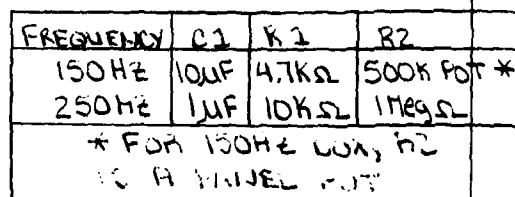 FREQUENCY C1 R1 R2
150HZ 10µF 4.7KΩ 500K POT *
250HZ 1µF 10KΩ 1MegΩ
* FOR 150HZ R2
A POT